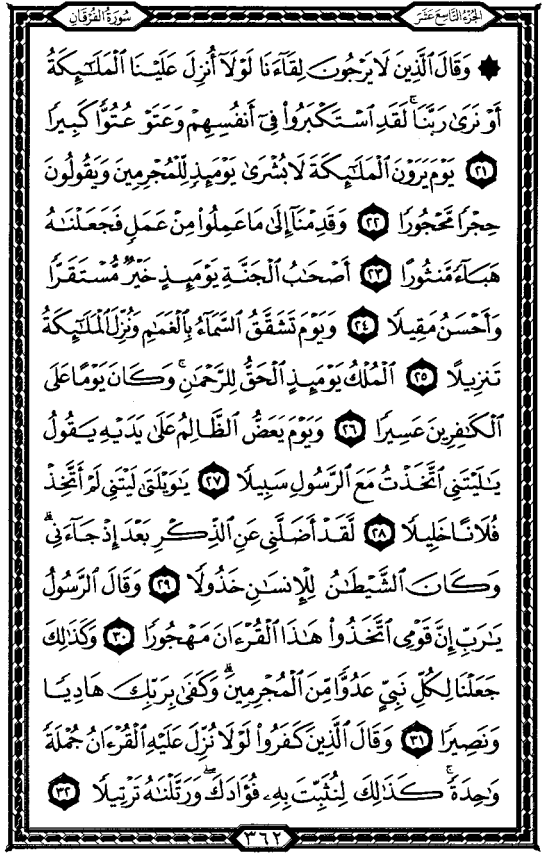 سُورَةُ الفُرْقَانِ
الجُزْءُ التَّاسِعَ عَشَرَ
۞ وَقَالَ ٱلَّذِينَ لَا يَرْجُونَ لِقَآءَنَا لَوْلَآ أُنزِلَ عَلَيْنَا ٱلْمَلَٰٓئِكَةُ
أَوْ نَرَىٰ رَبَّنَا ۗ لَقَدِ ٱسْتَكْبَرُوا۟ فِىٓ أَنفُسِهِمْ وَعَتَوْ عُتُوًّا كَبِيرًا
٢١ يَوْمَ يَرَوْنَ ٱلْمَلَٰٓئِكَةَ لَا بُشْرَىٰ يَوْمَئِذٍ لِّلْمُجْرِمِينَ وَيَقُولُونَ
حِجْرًا مَّحْجُورًا ٢٢ وَقَدِمْنَآ إِلَىٰ مَا عَمِلُوا۟ مِنْ عَمَلٍ فَجَعَلْنَٰهُ
هَبَآءً مَّنثُورًا ٢٣ أَصْحَٰبُ ٱلْجَنَّةِ يَوْمَئِذٍ خَيْرٌ مُّسْتَقَرًّا
وَأَحْسَنُ مَقِيلًا ٢٤ وَيَوْمَ تَشَقَّقُ ٱلسَّمَآءُ بِٱلْغَمَٰمِ وَنُزِّلَ ٱلْمَلَٰٓئِكَةُ
تَنزِيلًا ٢٥ ٱلْمُلْكُ يَوْمَئِذٍ ٱلْحَقُّ لِلرَّحْمَٰنِ ۚ وَكَانَ يَوْمًا عَلَى
ٱلْكَٰفِرِينَ عَسِيرًا ٢٦ وَيَوْمَ يَعَضُّ ٱلظَّالِمُ عَلَىٰ يَدَيْهِ يَقُولُ
يَٰلَيْتَنِى ٱتَّخَذْتُ مَعَ ٱلرَّسُولِ سَبِيلًا ٢٧ يَٰوَيْلَتَىٰ لَيْتَنِى لَمْ أَتَّخِذْ
فُلَانًا خَلِيلًا ٢٨ لَّقَدْ أَضَلَّنِى عَنِ ٱلذِّكْرِ بَعْدَ إِذْ جَآءَنِى ۗ
وَكَانَ ٱلشَّيْطَٰنُ لِلْإِنسَٰنِ خَذُولًا ٢٩ وَقَالَ ٱلرَّسُولُ
يَٰرَبِّ إِنَّ قَوْمِى ٱتَّخَذُوا۟ هَٰذَا ٱلْقُرْءَانَ مَهْجُورًا ٣٠ وَكَذَٰلِكَ
جَعَلْنَا لِكُلِّ نَبِىٍّ عَدُوًّا مِّنَ ٱلْمُجْرِمِينَ ۗ وَكَفَىٰ بِرَبِّكَ هَادِيًا
وَنَصِيرًا ٣١ وَقَالَ ٱلَّذِينَ كَفَرُوا۟ لَوْلَا نُزِّلَ عَلَيْهِ ٱلْقُرْءَانُ جُمْلَةً
وَٰحِدَةً ۚ كَذَٰلِكَ لِنُثَبِّتَ بِهِۦ فُؤَادَكَ ۖ وَرَتَّلْنَٰهُ تَرْتِيلًا ٣٢
٣٦٢